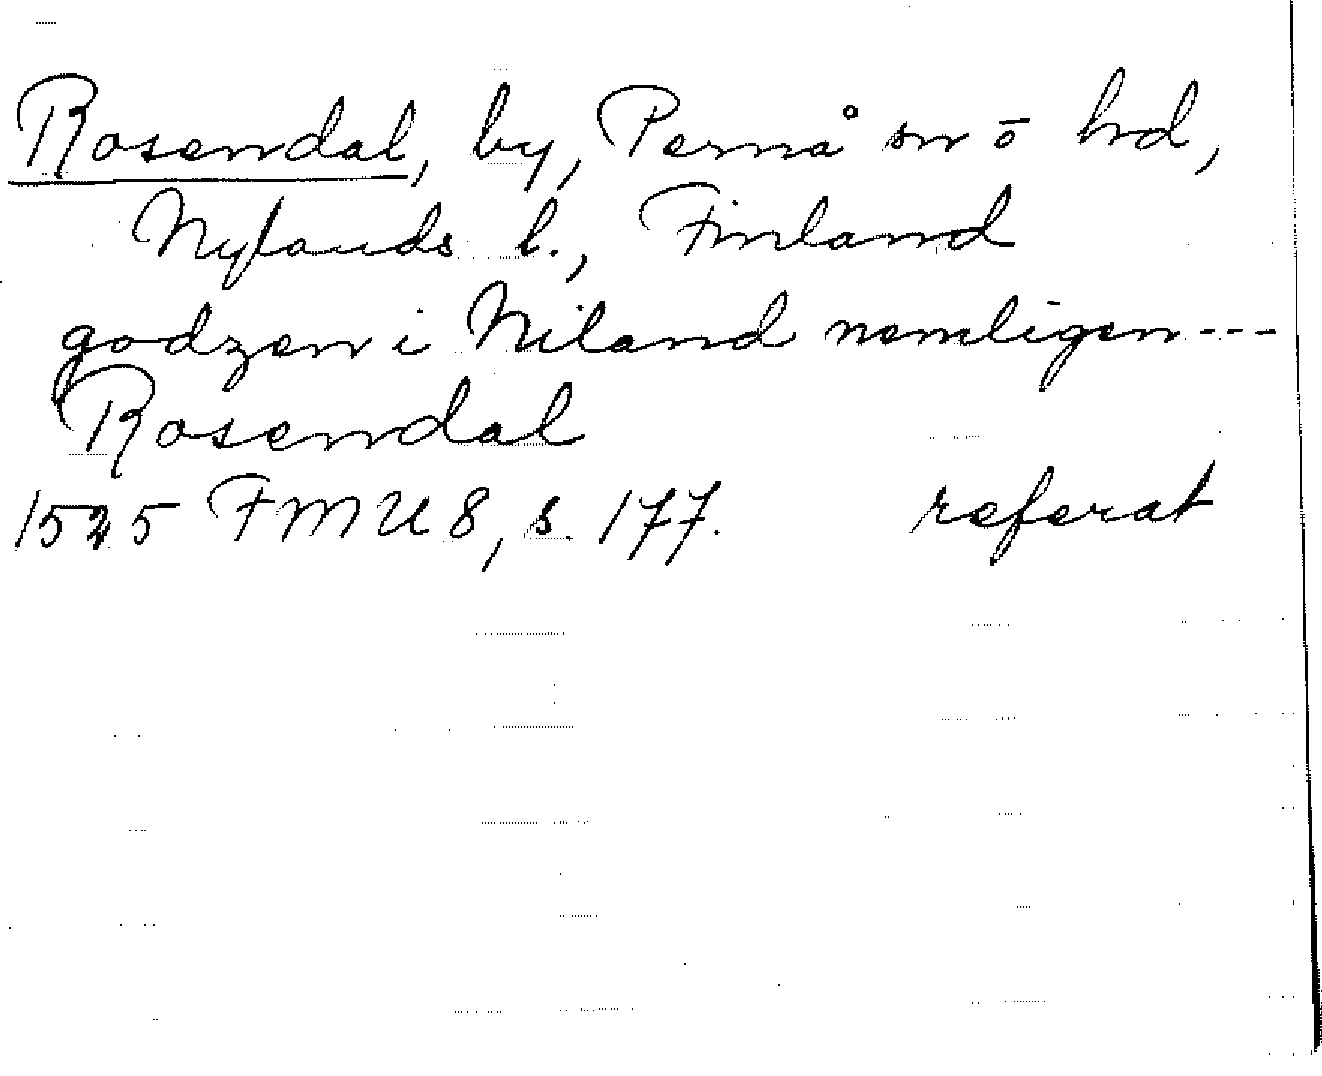 Rosendal, by, Pernå sn ō hd,
Nylands l., Finland
godzen i Niland nemligen ---
Rosendal
1525 FMU 8, s. 177. referat